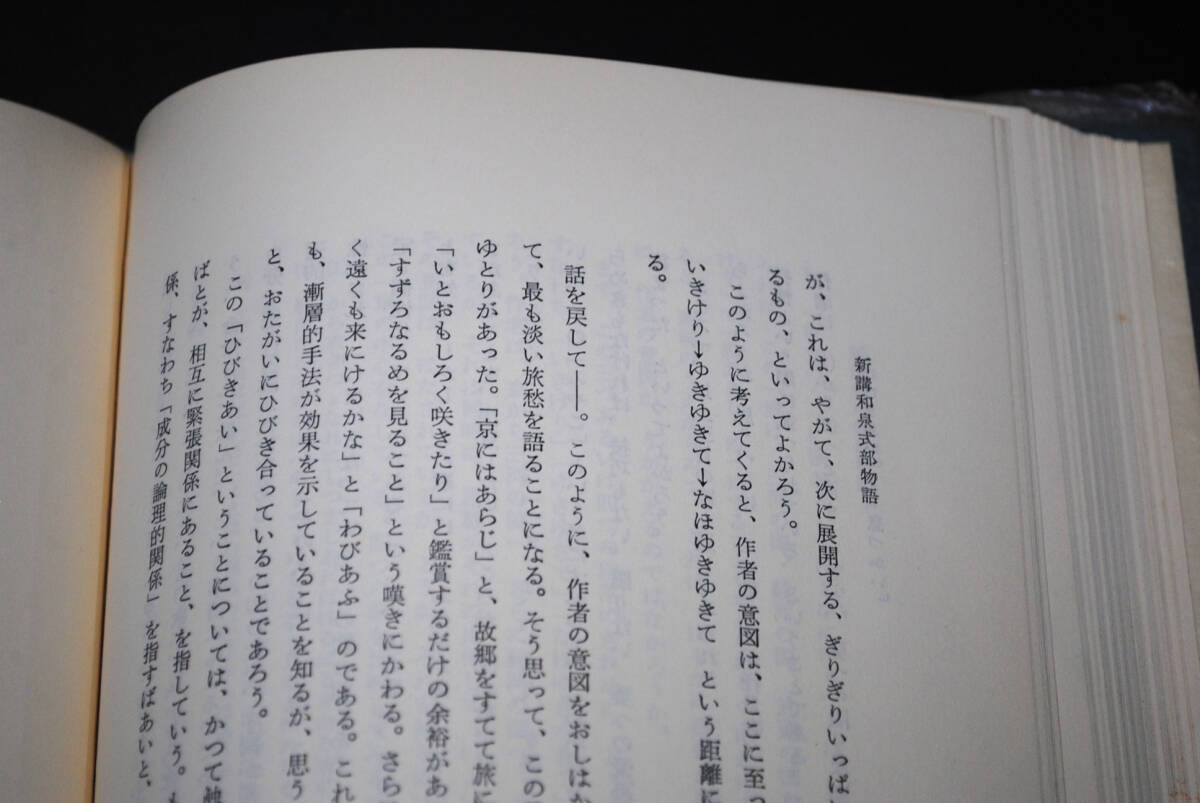 新講和泉式部物語
が、これは、やがて、次に展開する、ぎりぎりいっぱ
るもの、といってよかろう。
このように考えてくると、作者の意図は、ここに至っ
いきけり→ゆきゆきて→なほゆきゆきて という距離に
る。
話を戻して――。このように、作者の意図をおしはか
て、最も淡い旅愁を語ることになる。そう思って、この
ゆとりがあった。「京にはあらじ」と、故郷をすてて旅に
「いとおもしろく咲きたり」と鑑賞するだけの余裕があ
「すずろなるめを見ること」という嘆きにかわる。さら
く遠くも来にけるかな」と「わびあふ」のである。これ
も、漸層的手法が効果を示していることを知るが、思う
と、おたがいにひびき合っていることであろう。
この「ひびきあい」ということについては、かつて触
ばとが、相互に緊張関係にあること、を指していう。
係、すなわち「成分の論理的関係」を指すばあいと、